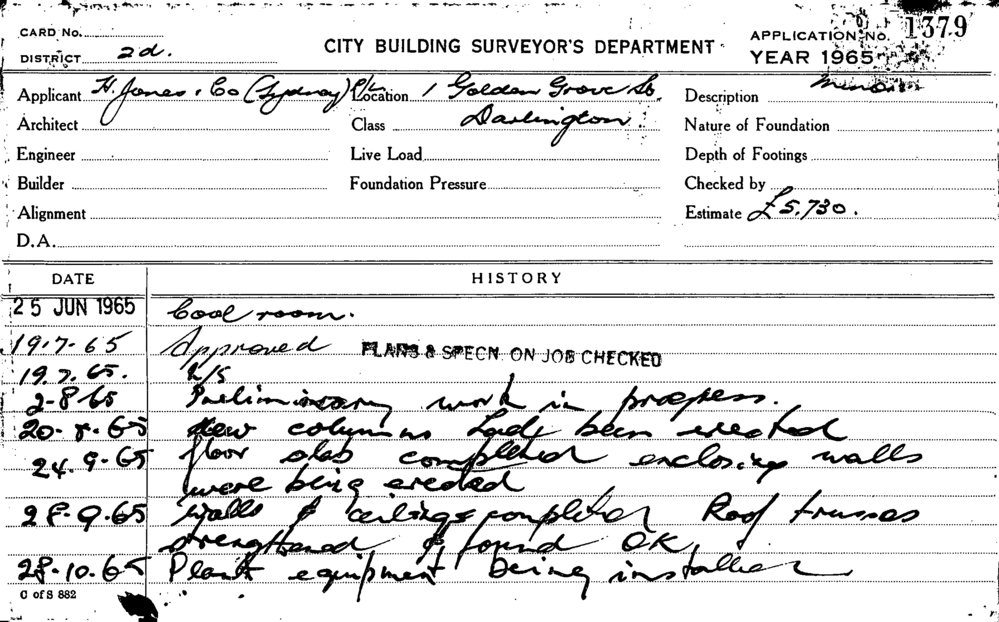 CARD No.
DISTRICT 2d.
CITY BUILDING SURVEYOR'S DEPARTMENT
APPLICATION No. 1379
YEAR 1965
Applicant H. Jones & Co (Sydney) P/L
Location 1 Golden Grove St.
Darlington
Description Minor
Architect
Class
Nature of Foundation
Engineer
Live Load
Depth of Footings
Builder
Foundation Pressure
Checked by
Alignment
Estimate £5,730.
D.A.
DATE HISTORY
25 JUN 1965 Cool room.
19.7.65 Approved PLANS & SPECN ON JOB CHECKED
19.7.65.
2-8-65 Preliminary work in progress.
20.8.65 New columns had been erected
24.9.65 floor slab completed enclosing walls
were being erected
28.9.65 Walls & ceilings completed Roof trusses
strengthened & found OK
28.10.65 Plant equipment being installed
C of S 882